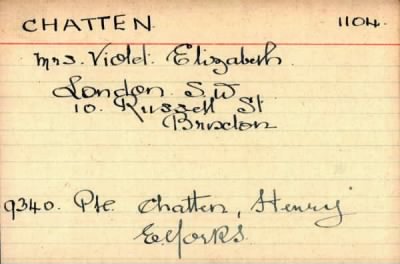 CHATTEN. 1104.
Mrs. Violet Elizabeth.
London S.W.
10. Russell St
Brixton
9340. Pte. Chatten, Henry
E. Yorks.